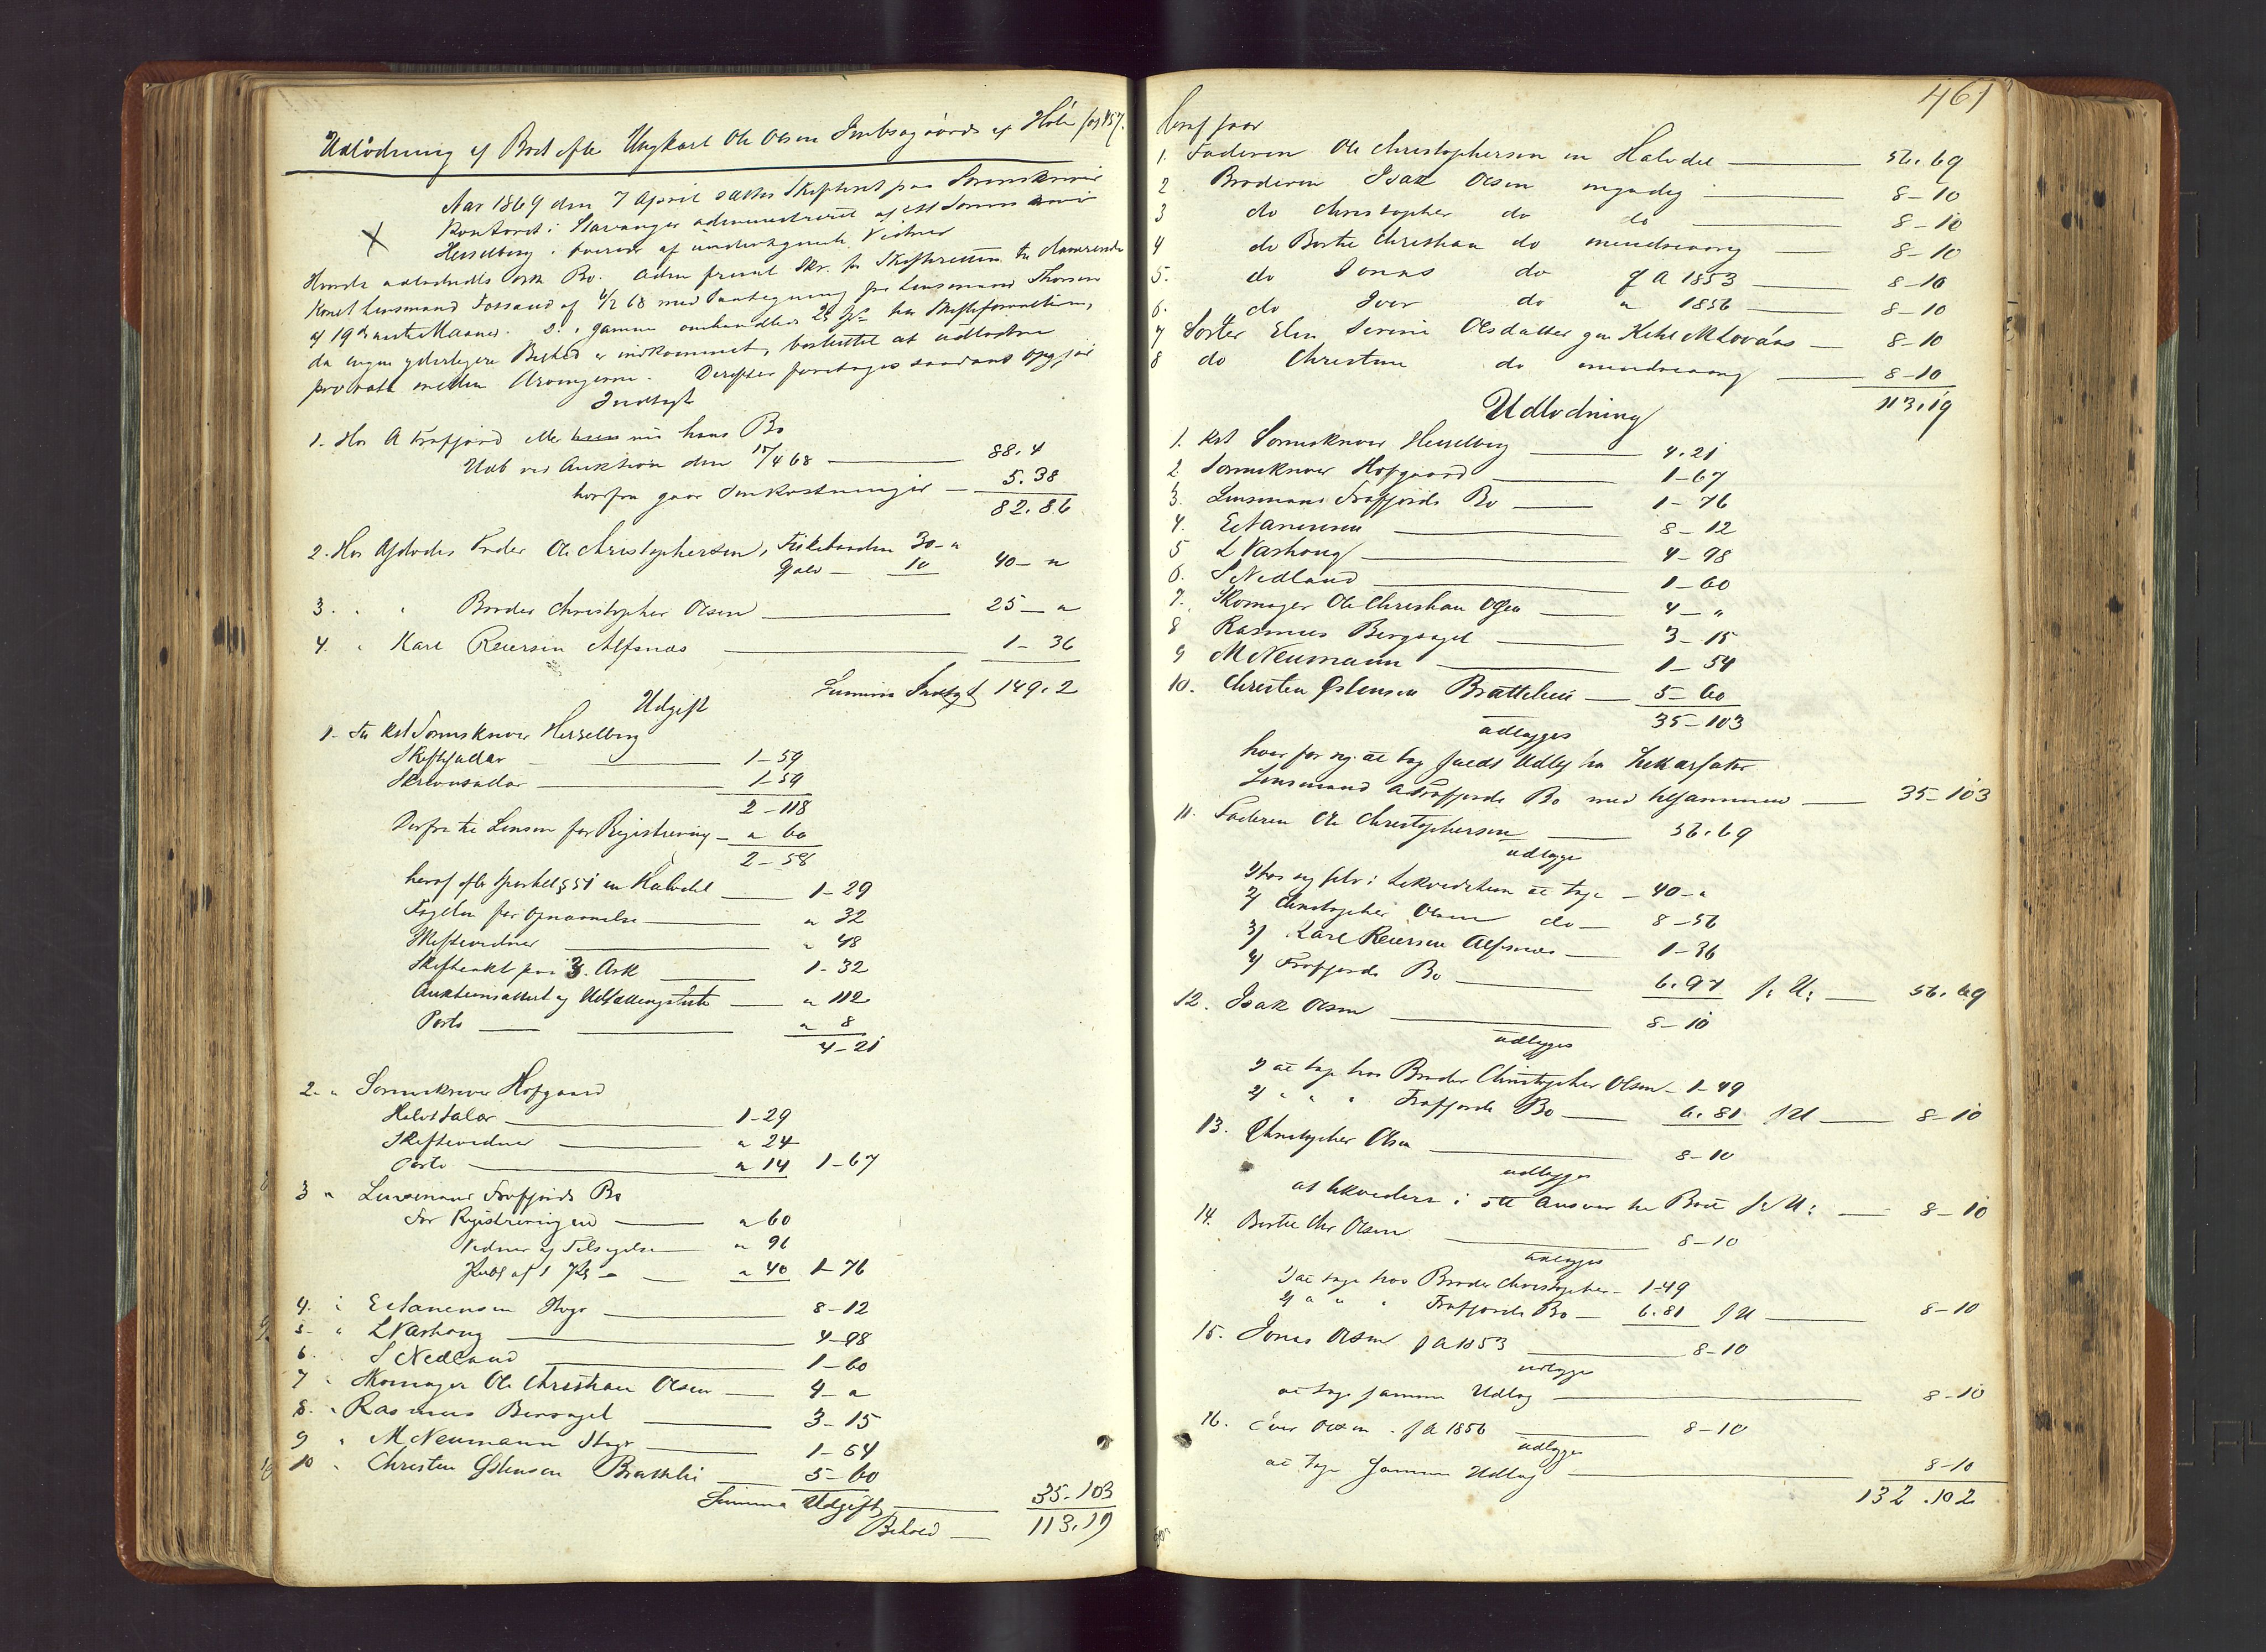 Udlodning af Boet efter Ungkarl Ole Olsen af Høle fog 457.
Aar 1869 den 7 April sattes Skifteret paa Sorenskriver
Kontoret i Stavanger administreret af cst Sorenskriver
Hesselberg i Overvær af undertegnede Vidner
Hvorda udlodedes Bo. Skr. fra Skifteretten til
Konst Lensmand Fossand af 4/2 68 med Paategning fra Lensmand Thorsen
af 19de næste Maaned. D. s. 
da ingen yderligere Besked er indkommet, besluttet at udlodne
prorata mellem Arvingerne. Derefter foretages saadant Opgjør
Indtægt
1. Hos A Frafjord eller nu hans Bo
Udb ved Auktion den 15/4 68 88. 4
hvorfra gaar Omkostninger 5. 38
82. 86
2. Hos Afdødes Fader Ole Christophersen, Fiskebaaden 30 - "
Gjæld 10 40 - "
3. " " Broder Christopher Olsen 25 - "
4. " Karl Reiersen Alfsnæs 1 - 36
Summa Indtægt 149. 2
Udgift
1. Til kst Sorenskriver Hesselberg
Skiftesallar 1 - 59
Skriversallar 1 - 59
2 - 118
Derfra til Lensm for Registrering " 60
2 - 58
heraf efter Sportel § 51 en Halvdel 1 - 29
Fogden for Opnævnelse " 32
Skiftevidner " 48
Skifteakt paa 3 Ark 1 - 32
Auktionsattest og Udlodningsliste " 112
Porto " 8
4 - 21
2. " Sorenskriver Hofgaard
Halvt Salær 1 - 29
Skiftevidner " 24
Porto " 14 1 - 67
3 " Lensmand Frafjords Bo
For Registreringen " 60
Vidner og Tilsigelse " 96
Publ af 1 Pkl " 40 1 - 76
4. " E Stanensen Stvgr 8 - 12
5. " L Varhoug 4 - 98
6. " S Nedland 1 - 60
7 " Skomager Ole Christian Olsen 4 - "
8. " Rasmus Bersagel 3 - 15
9 " M Neumann Stvgr 1 - 54
10 " Christen Østensen Bratteli 5 - 60
Summa Udgift 35. 103
Behold 113. 19
461
heraf faar
1. Faderen Ole Christophersen en Halvdel 56. 69
2 Broderen Isak Olsen myndig 8 - 10
3 do Christopher do do 8 - 10
4 do Bertil Christian do mindreaarig 8 - 10
5. do Jonas do f A 1853 8 - 10
6. do Iver do " 1856 8 - 10
7 Søster Elen Serine Olsdatter gm Ketil M Lovaas 8 - 10
8 do Christine do mindreaarig 8 - 10
113. 19
Udlodning
1. kst Sorenskriver Hesselberg 4. 21
2. Sorenskriver Hofgaard 1 - 67
3. Lensmand Frafjords Bo 1 - 76
4. E Stanensen 8 - 12
5 L Varhoug 4 - 98
6. S Nedland 1 - 60
7. Skomager Ole Christian Olsen 4 - "
8 Rasmus Bergsagel 3 - 15
9 M Neumann 1 - 54
10. Christen Østensen Brattelie 5 - 60
35 - 103
udlægges
hver for sig at tage fuldt Udlæg hos Inkassator
Lensmand A Frafjords Bo med tilsammen 35 - 103
11. Faderen Ole Christophersen 56. 69
udlægges
1/ hos sig selv i Likvidation at tage 40 - "
2/ Christopher Olsen do 8 - 56
3/ Karl Reiersen Alfsnæs 1 - 36
4/ Frafjords Bo 6. 97 f: U: 56. 69
12. Isak Olsen 8 - 10
udlægges
1/ at tage hos Broder Christopher Olsen 1 - 49
2/ " " " Frafjords Bo 6. 81 f U 8 - 10
13. Christopher Olsen 8 - 10
udlægges
at likvidere i sit Ansvar til Boet f: U: 8 - 10
14. Bertil Chr Olsen 8 - 10
udlægges
1/ at tage hos Broder Christopher 1 - 49
2/ " " " Frafjords Bo 6. 81 f U 8 - 10
15. Jonas Olsen f A 1853 8 - 10
udlægges
at tage samme Udlæg 8 - 10
16. Iver Olsen f A 1856 8 - 10
udlægges
at tage samme Udlæg 8 - 10
132. 102